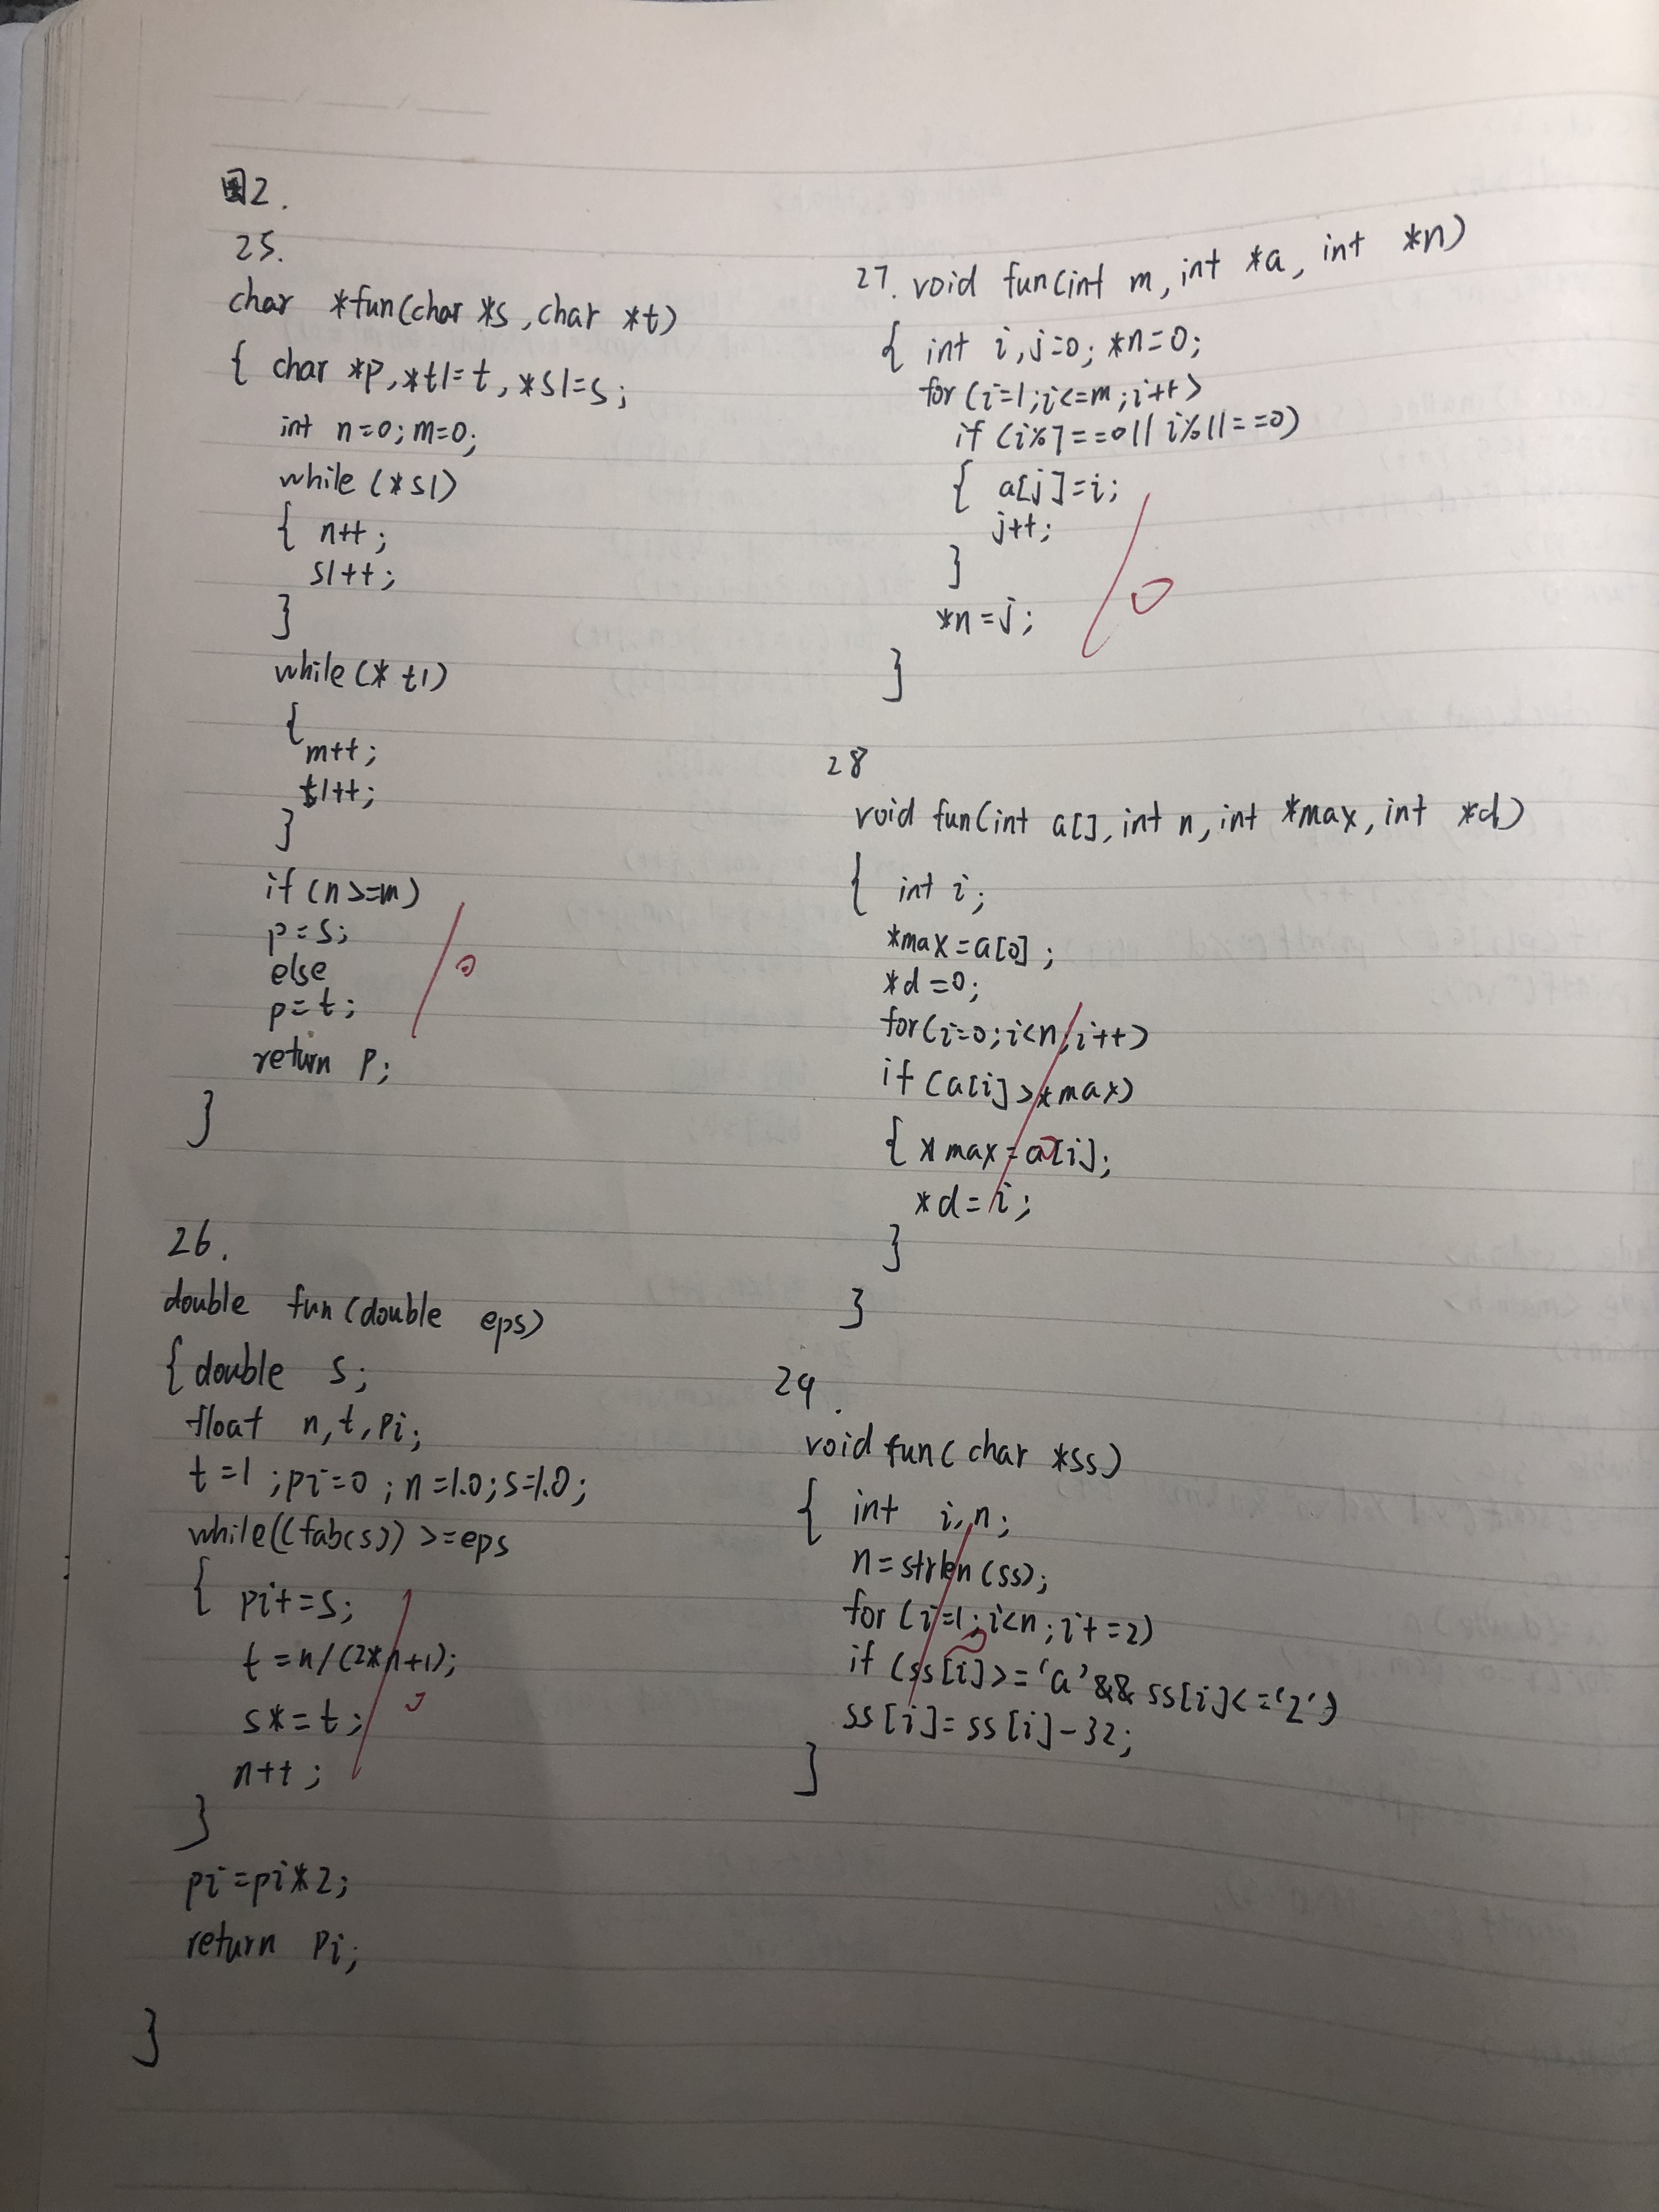 2.
25.
char *fun(char *s, char *t)
{ char *p, *t1=t, *s1=s;
int n=0; m=0;
while (*s1)
{ n++;
s1++;
}
while (*t1)
{
m++;
t1++;
}
if (n>=m)
p=s;
else
p=t;
return p;
}
26.
double fun(double eps)
{ double s;
float n, t, pi;
t=1; pi=0; n=1.0; s=1.0;
while((fab(s))>=eps
{ pi+=s;
t=n/(2*n+1);
s*=t;
n++;
}
pi=pi*2;
return pi;
}
27. void fun(int m, int *a, int *n)
{ int i, j=0; *n=0;
for (i=1; i<=m; i++)
if (i%7==0 || i%11==0)
{ a[j]=i;
j++;
}
*n=j;
}
28
void fun(int a[], int n, int *max, int *d)
{ int i;
*max=a[0];
*d=0;
for(i=0; i<n; i++)
if (a[i]>*max)
{ *max=a[i];
*d=i;
}
}
29.
void fun( char *ss)
{ int i, n;
n=strlen(ss);
for (i=1; i<n; i+=2)
if (ss[i]>='a' && ss[i]<='z')
ss[i]=ss[i]-32;
}